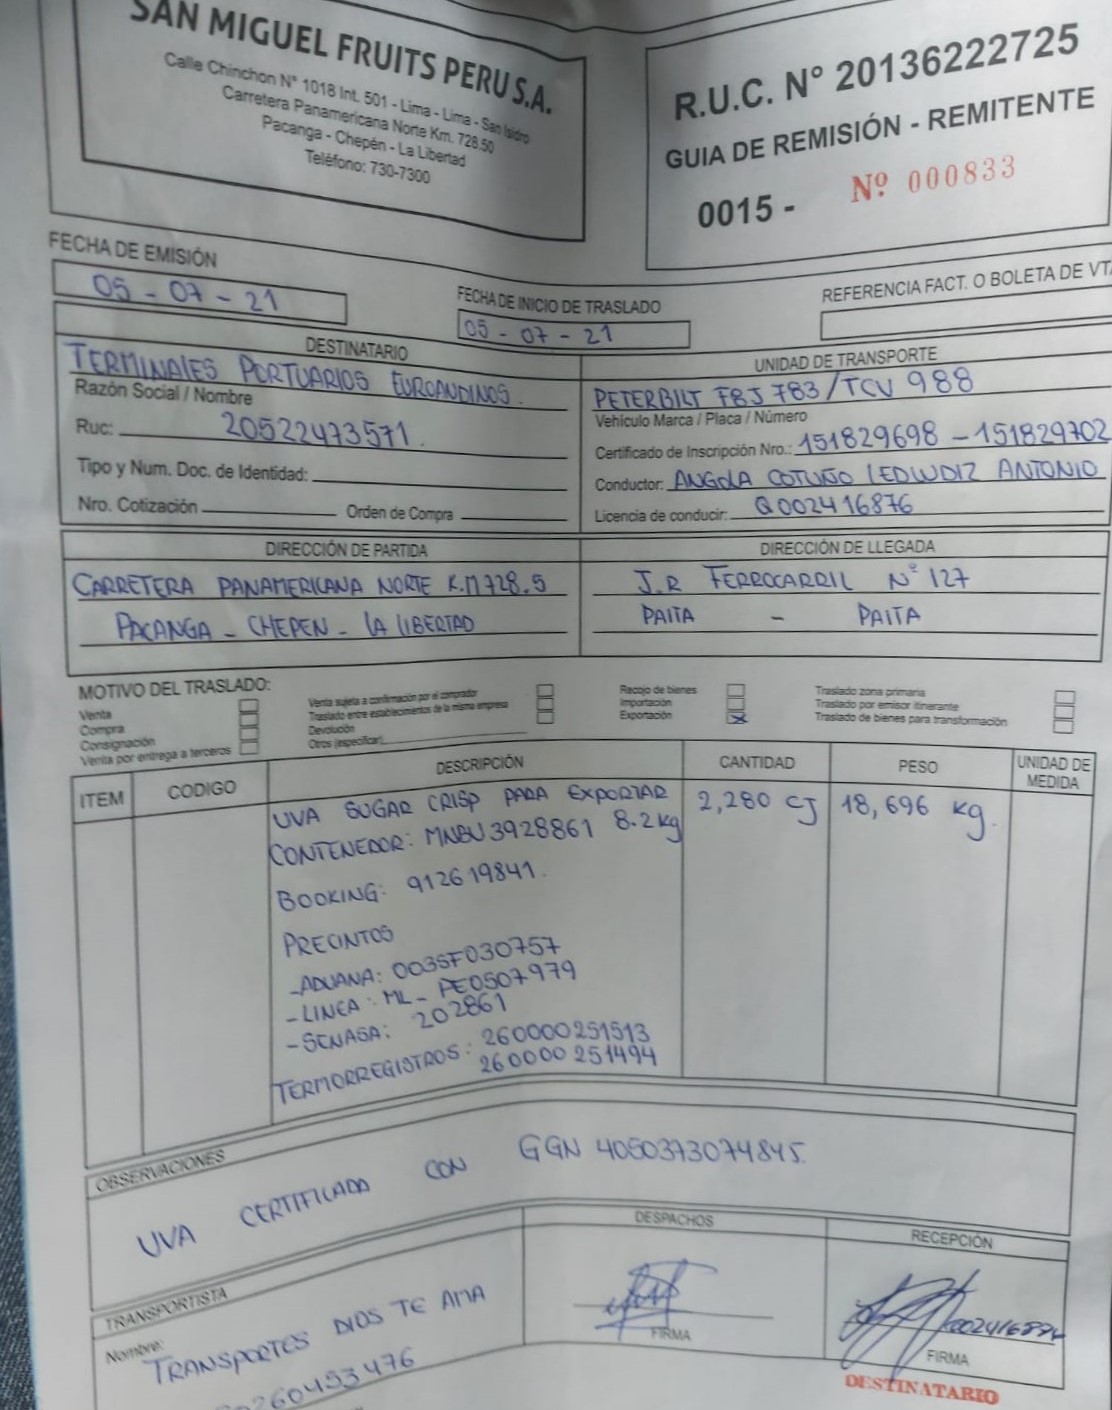 SAN MIGUEL FRUITS PERU S.A.
Calle Chinchon N° 1018 Int. 501 - Lima - Lima - San Isidro
Carretera Panamericana Norte Km. 728.50
Pacanga - Chepén - La Libertad
Teléfono: 730-7300
R.U.C. N° 20136222725
GUIA DE REMISIÓN - REMITENTE
0015 - Nº 000833
FECHA DE EMISIÓN
05 - 07 - 21
FECHA DE INICIO DE TRASLADO
05 - 07 - 21
REFERENCIA FACT. O BOLETA DE VTA
DESTINATARIO
TERMINALES PORTUARIOS EUROANDINOS.
Razón Social / Nombre
Ruc: 20522473571.
Tipo y Num. Doc. de Identidad:
Nro. Cotización Orden de Compra
UNIDAD DE TRANSPORTE
PETERBILT F8J 783/TCV 988
Vehículo Marca / Placa / Número
Certificado de Inscripción Nro.: 151829698 - 151829702
Conductor: ANGOLA COTUÑO LEDWDIZ ANTONIO
Licencia de conducir: Q002416876
DIRECCIÓN DE PARTIDA
CARRETERA PANAMERICANA NORTE K.M 728.5
PACANGA - CHEPEN - LA LIBERTAD
DIRECCIÓN DE LLEGADA
J.R FERROCARRIL N° 127
PAITA - PAITA
MOTIVO DEL TRASLADO:
Venta
Compra
Consignación
Venta por entrega a terceros
Venta sujeta a confirmación por el comprador
Traslado entre establecimientos de la misma empresa
Devolución
Otros (especificar)
Recojo de bienes
Importación
Exportación X
Traslado zona primaria
Traslado por emisor itinerante
Traslado de bienes para transformación
ITEM CODIGO DESCRIPCIÓN CANTIDAD PESO UNIDAD DE MEDIDA
UVA SUGAR CRISP PARA EXPORTAR 2,280 CJ 18,696 Kg.
CONTENEDOR: MNBU3928861 8.2kg
BOOKING: 912619841.
PRECINTOS
-ADUANA: 003SF030757
-LINEA: ML-PE0507979
-SENASA: 202861
TERMORREGISTROS: 260000251513
260000251494
OBSERVACIONES
UVA CERTIFICADA CON GGN 4050373074845.
TRANSPORTISTA
Nombre:
TRANSPORTES DIOS TE AMA
260453476
DESPACHOS
FIRMA
RECEPCIÓN
FIRMA
DESTINATARIO